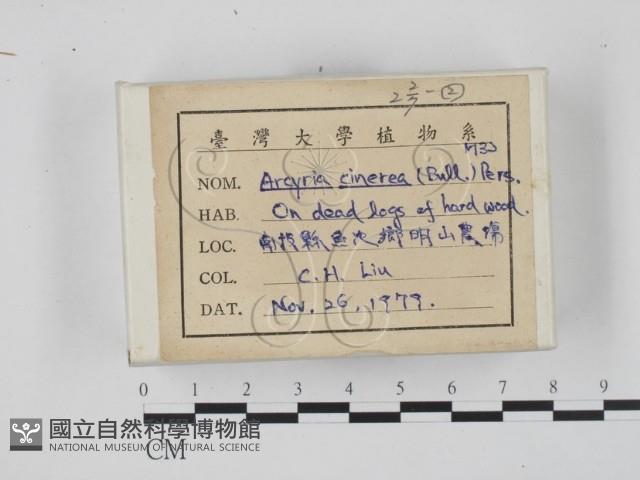 2 2/7 - ②
臺灣大學植物系
M33
NOM. Arcyria cinerea (Bull.) Pers.
HAB. On dead logs of hard wood.
LOC. 南投縣魚池鄉明山農場
COL. C. H. Liu
DAT. Nov. 26, 1979.
0 1 2 3 4 5 6 7 8 9
CM
國立自然科學博物館
NATIONAL MUSEUM OF NATURAL SCIENCE